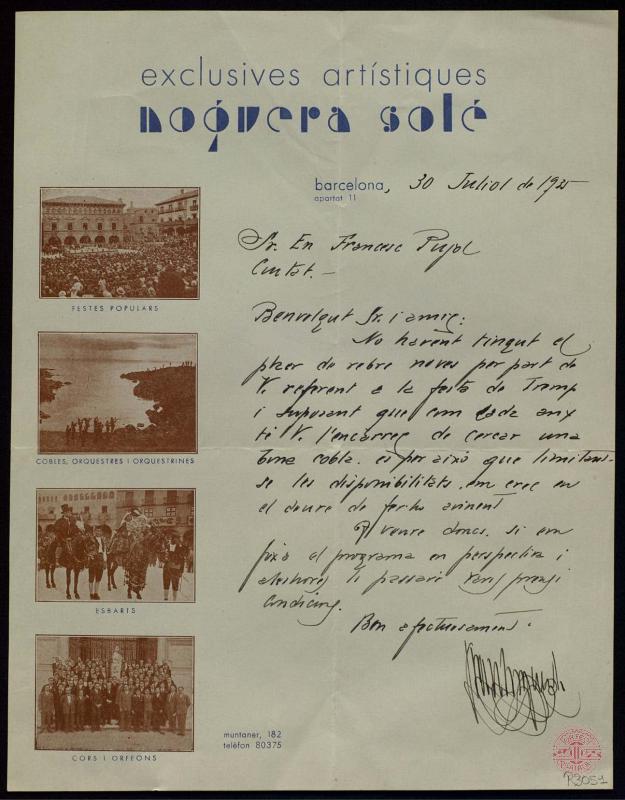 exclusives artístiques
noguera solé
barcelona, 30 Juliol de 1935
apartat 11
Sr. En Francesc Pujol
Ciutat.—
Benvolgut Sr. i amic:
No havent tingut el
plaer de rebre noves per part de
V. referent a la festa de Tramp
i suposant que com cada any
té V. l'encàrrec de cercar una
bona cobla, es per això que limitant-
se les disponibilitats, em crec en
el deure de fer-ho avinent
veure doncs, si em
fixa el programa en perspectiva i
aleshores li passaré preu i
condicions.
Ben afectuosament.
FESTES POPULARS
COBLES, ORQUESTRES I ORQUESTRINES
ESBARTS
CORS I ORFEONS
muntaner, 182
telèfon 80375
R3051